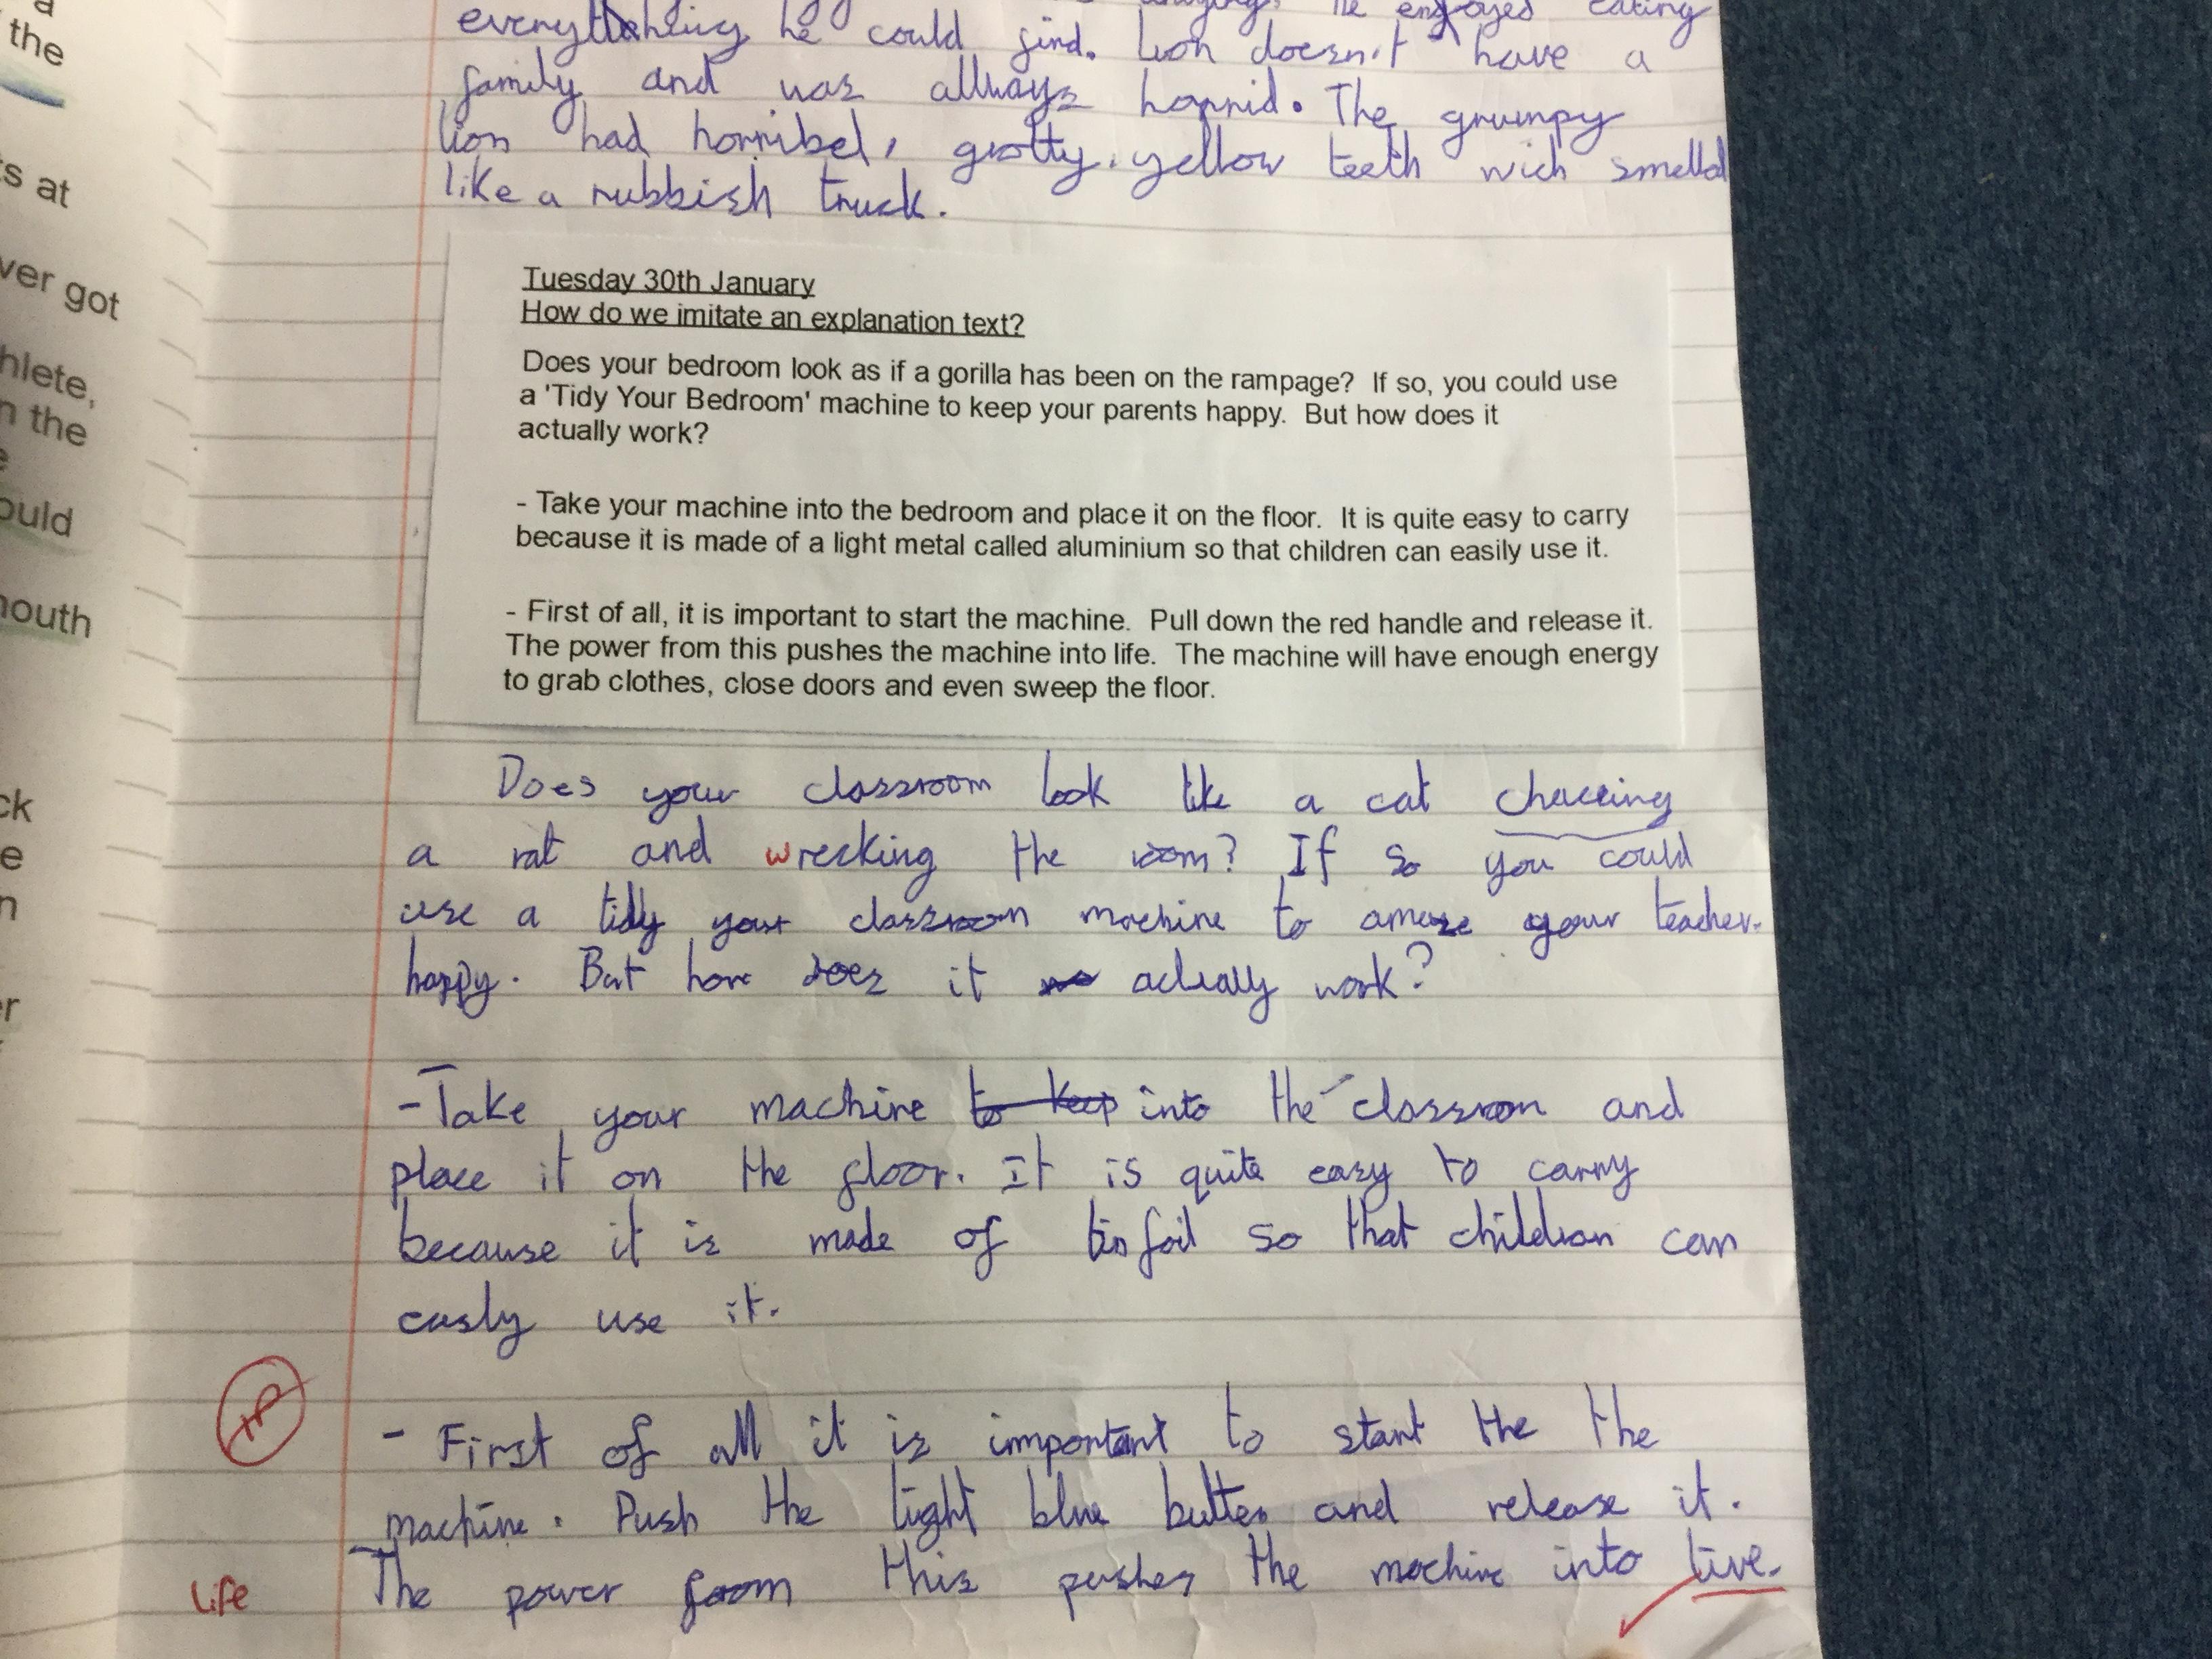 the
s at
ver got
hlete,
n the
ould
mouth
ck
e
n
er
he enjoyed eating
everything he could find. Lion doesn't have a
family and was allways horrid. The grumpy
lion had horribel, grotty, yellow teeth wich smelled
like a rubbish truck.
Tuesday 30th January
How do we imitate an explanation text?
Does your bedroom look as if a gorilla has been on the rampage? If so, you could use
a 'Tidy Your Bedroom' machine to keep your parents happy. But how does it
actually work?
- Take your machine into the bedroom and place it on the floor. It is quite easy to carry
because it is made of a light metal called aluminium so that children can easily use it.
- First of all, it is important to start the machine. Pull down the red handle and release it.
The power from this pushes the machine into life. The machine will have enough energy
to grab clothes, close doors and even sweep the floor.
Does your classroom look like a cat
a rat and wrecking the room? If so you could
use a tidy your classroom machine to amaze your teacher.
happy. But how does it actually work?
-Take your machine to keep into the classroom and
place it on the floor. It is quite easy to carry
because it is made of tin foil so that children can
easly use it.
- First of all it is important to start the the
machine. Push the light blue button and release it.
life The power from this pushes the machine into live.